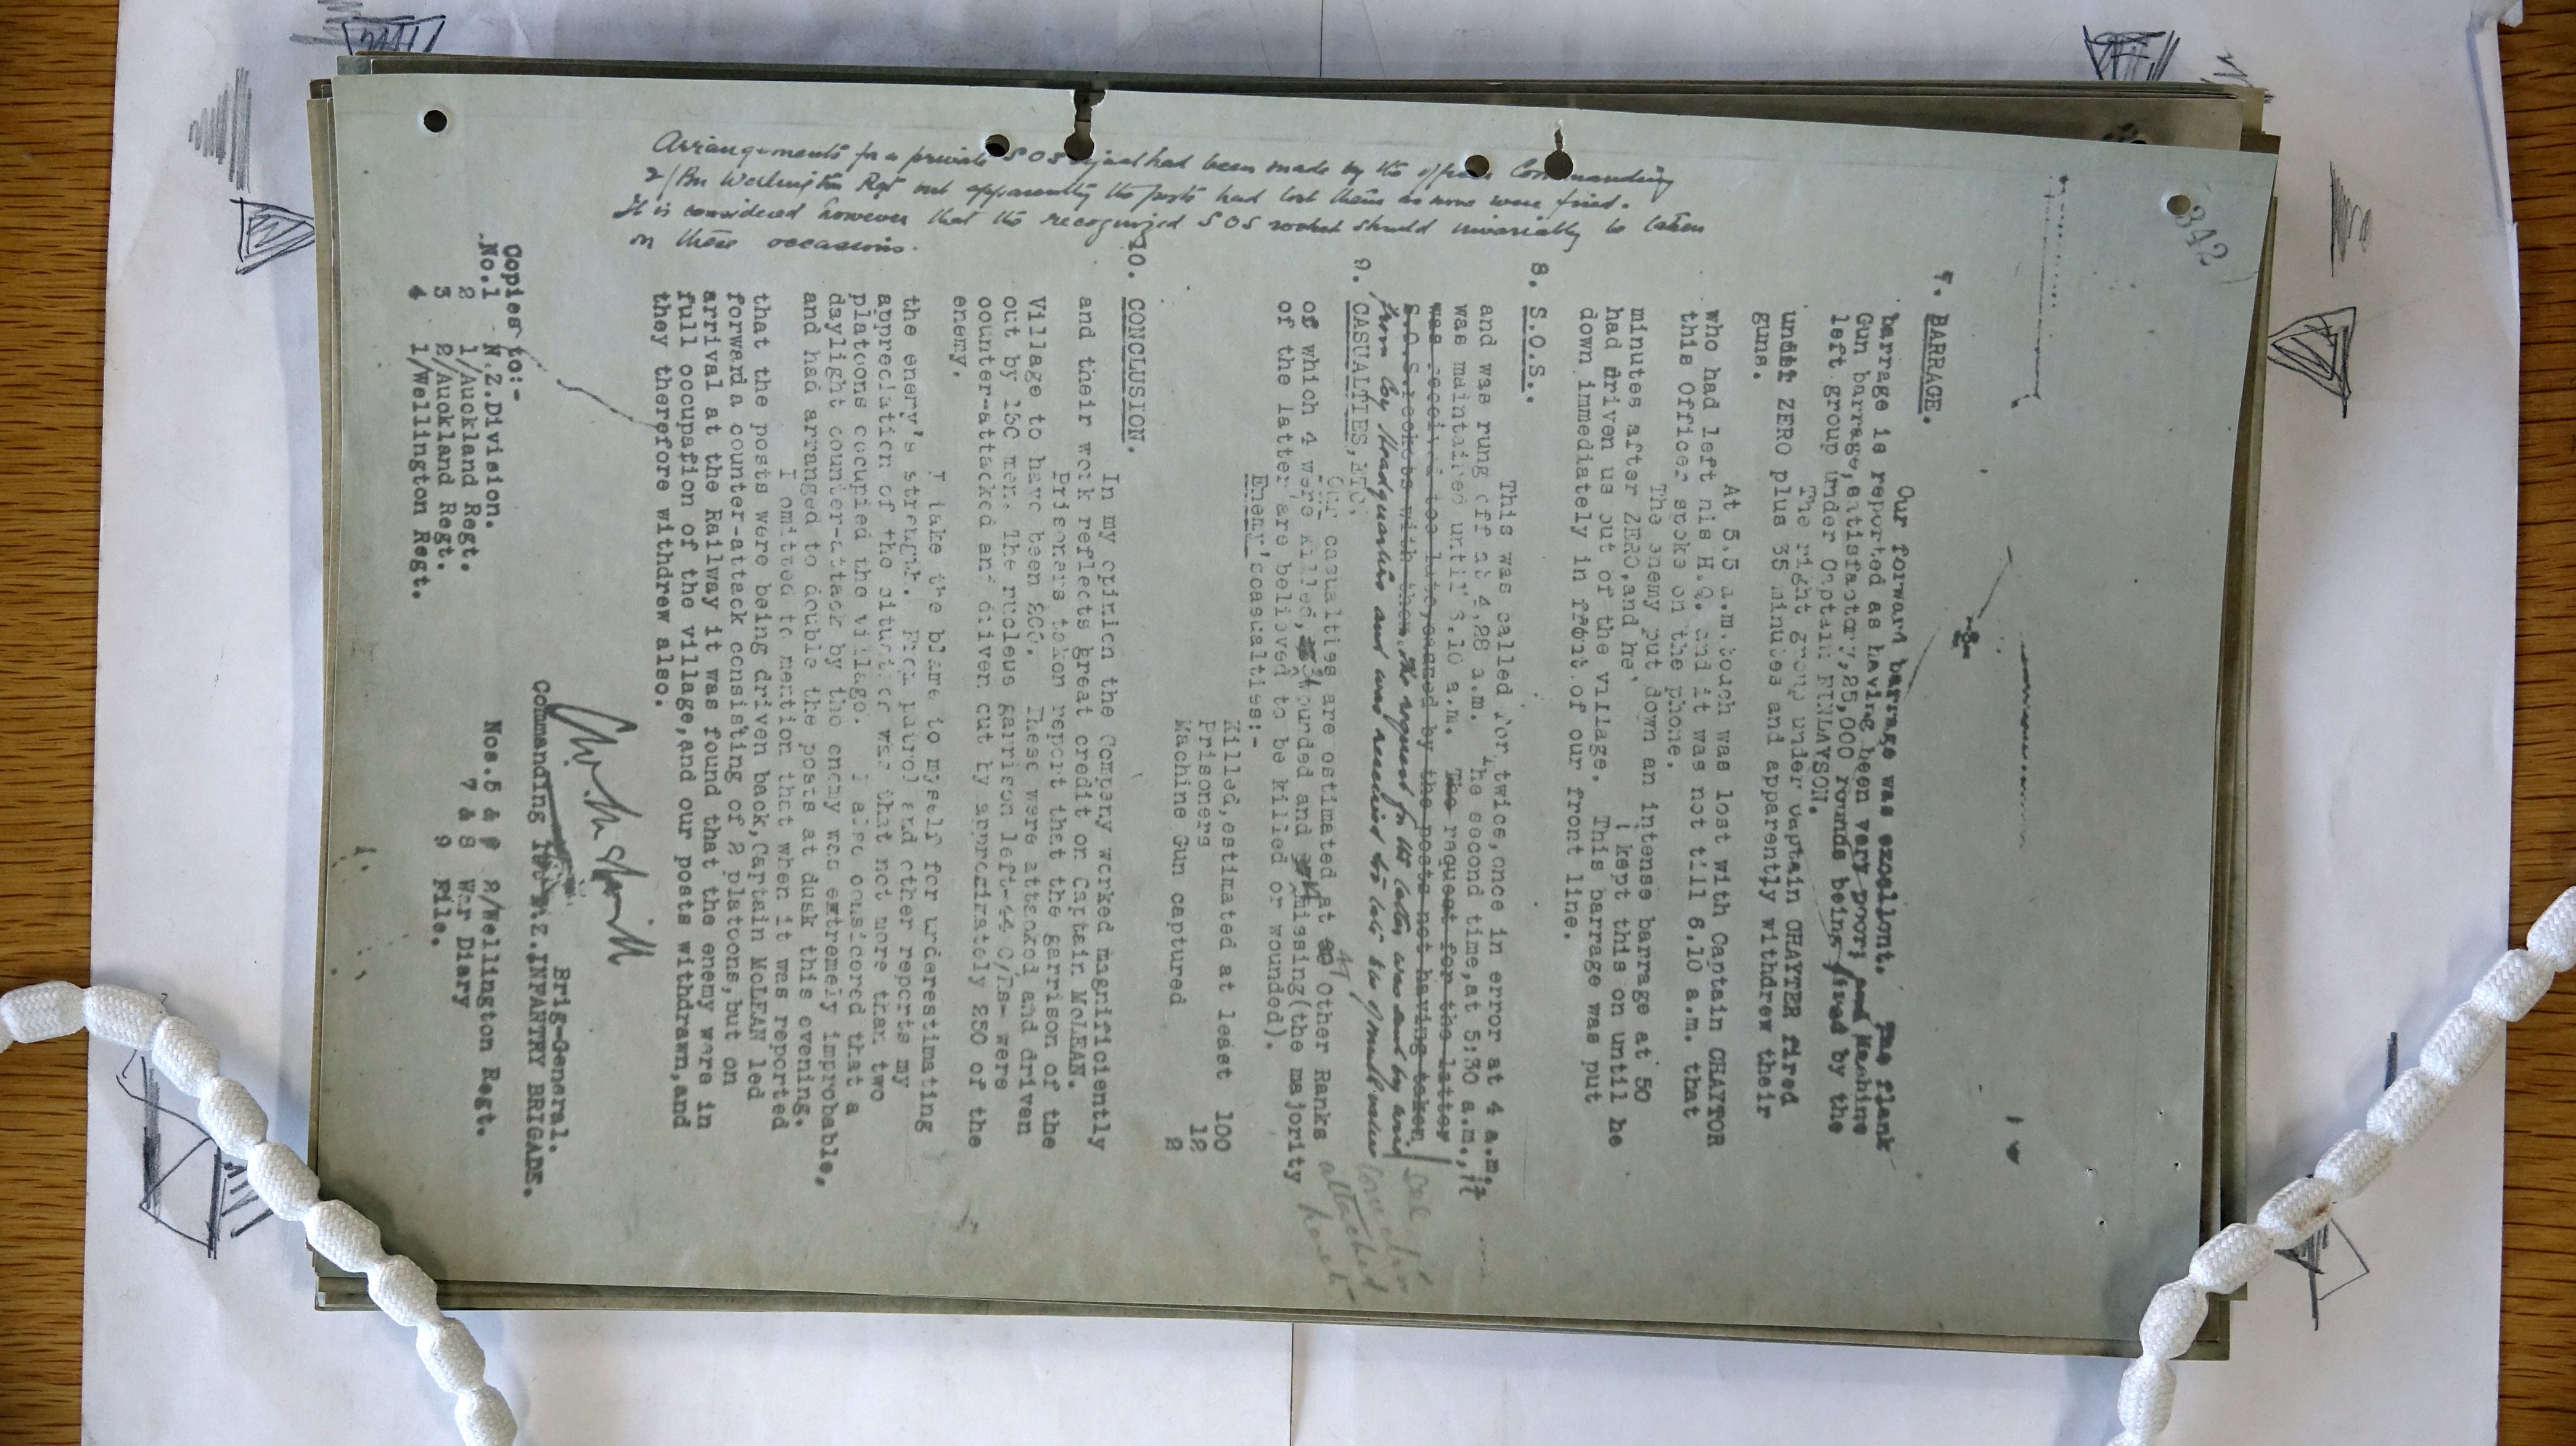 342
-2-
7. BARRAGE.
Our forward barrage was excellent. The flank
barrage is reported as having been very poor; and Machine
Gun barrage, satisfactory, 25,000 rounds being fired by the
left group under Captain FINLAYSON.
The right group under Captain CHAYTER fired
until ZERO plus 35 minutes and apparently withdrew their
guns.
At 5.5 a.m. touch was lost with Captain CHAYTOR
who had left his H.Q. and it was not till 6.10 a.m. that
this Officer spoke on the phone.
The enemy put down an intense barrage at 50
minutes after ZERO, and he
had driven us out of the village. I kept this on until he
down immediately in front of our front line. This barrage was put
8. S.O.S.
This was called for twice, once in error at 4 a.m.
and was rung off at 4.28 a.m. The second time, at 5:30 a.m., it
was maintained until 6.10 a.m. The request for the latter
was received too late, caused by the posts not having taken
S.O.S. rockets with them. The request for the latter was sent by wire
from Coy Headquarters and was received too late to be of much value
see
correction
attached
hereto
9. CASUALTIES, ETC.
Our casualties are estimated at 47 Other Ranks
of which 4 were killed, wounded and missing (the majority
of the latter are believed to be killed or wounded).
Enemy's casualties:-
Killed, estimated at least 100
Prisoners 12
Machine Gun captured 2
10. CONCLUSION.
In my opinion the Company worked magnificiently
and their work reflects great credit on Captain McLEAN.
Prisoners taken report that the garrison of the
Village to have been 200. These were attacked and driven
out by 130 men. The nucleus garrison left-44 O/Rs- were
counter-attacked and driven out by approximately 250 of the
enemy.
I take the blame to myself for underestimating
the enemy's strength. From patrol and other reports my
appreciation of the situation was that not more than two
platoons occupied the village. I also considered that a
daylight counter-attack by the enemy was extremely improbable,
and had arranged to double the posts at dusk this evening.
I omitted to mention that when it was reported
that the posts were being driven back, Captain McLEAN led
forward a counter-attack consisting of 2 platoons, but on
arrival at the Railway it was found that the enemy were in
full occupation of the village, and our posts withdrawn, and
they therefore withdrew also.
Brig-General.
Commanding 1st N.Z. INFANTRY BRIGADE.
Copies to:-
No.1 N.Z.Division.
2 1/Auckland Regt.
3 2/Auckland Regt.
4 1/Wellington Regt.
Nos.5 & 6 2/Wellington Regt.
7 & 8 War Diary
9 File.
Arrangements for a private SOS signal had been made by the officer Commanding
2/Bn Wellington Rgt but apparently the posts had lost them as none were fired.
It is considered however that the recognized SOS rocket should invariably be taken
on these occasions.